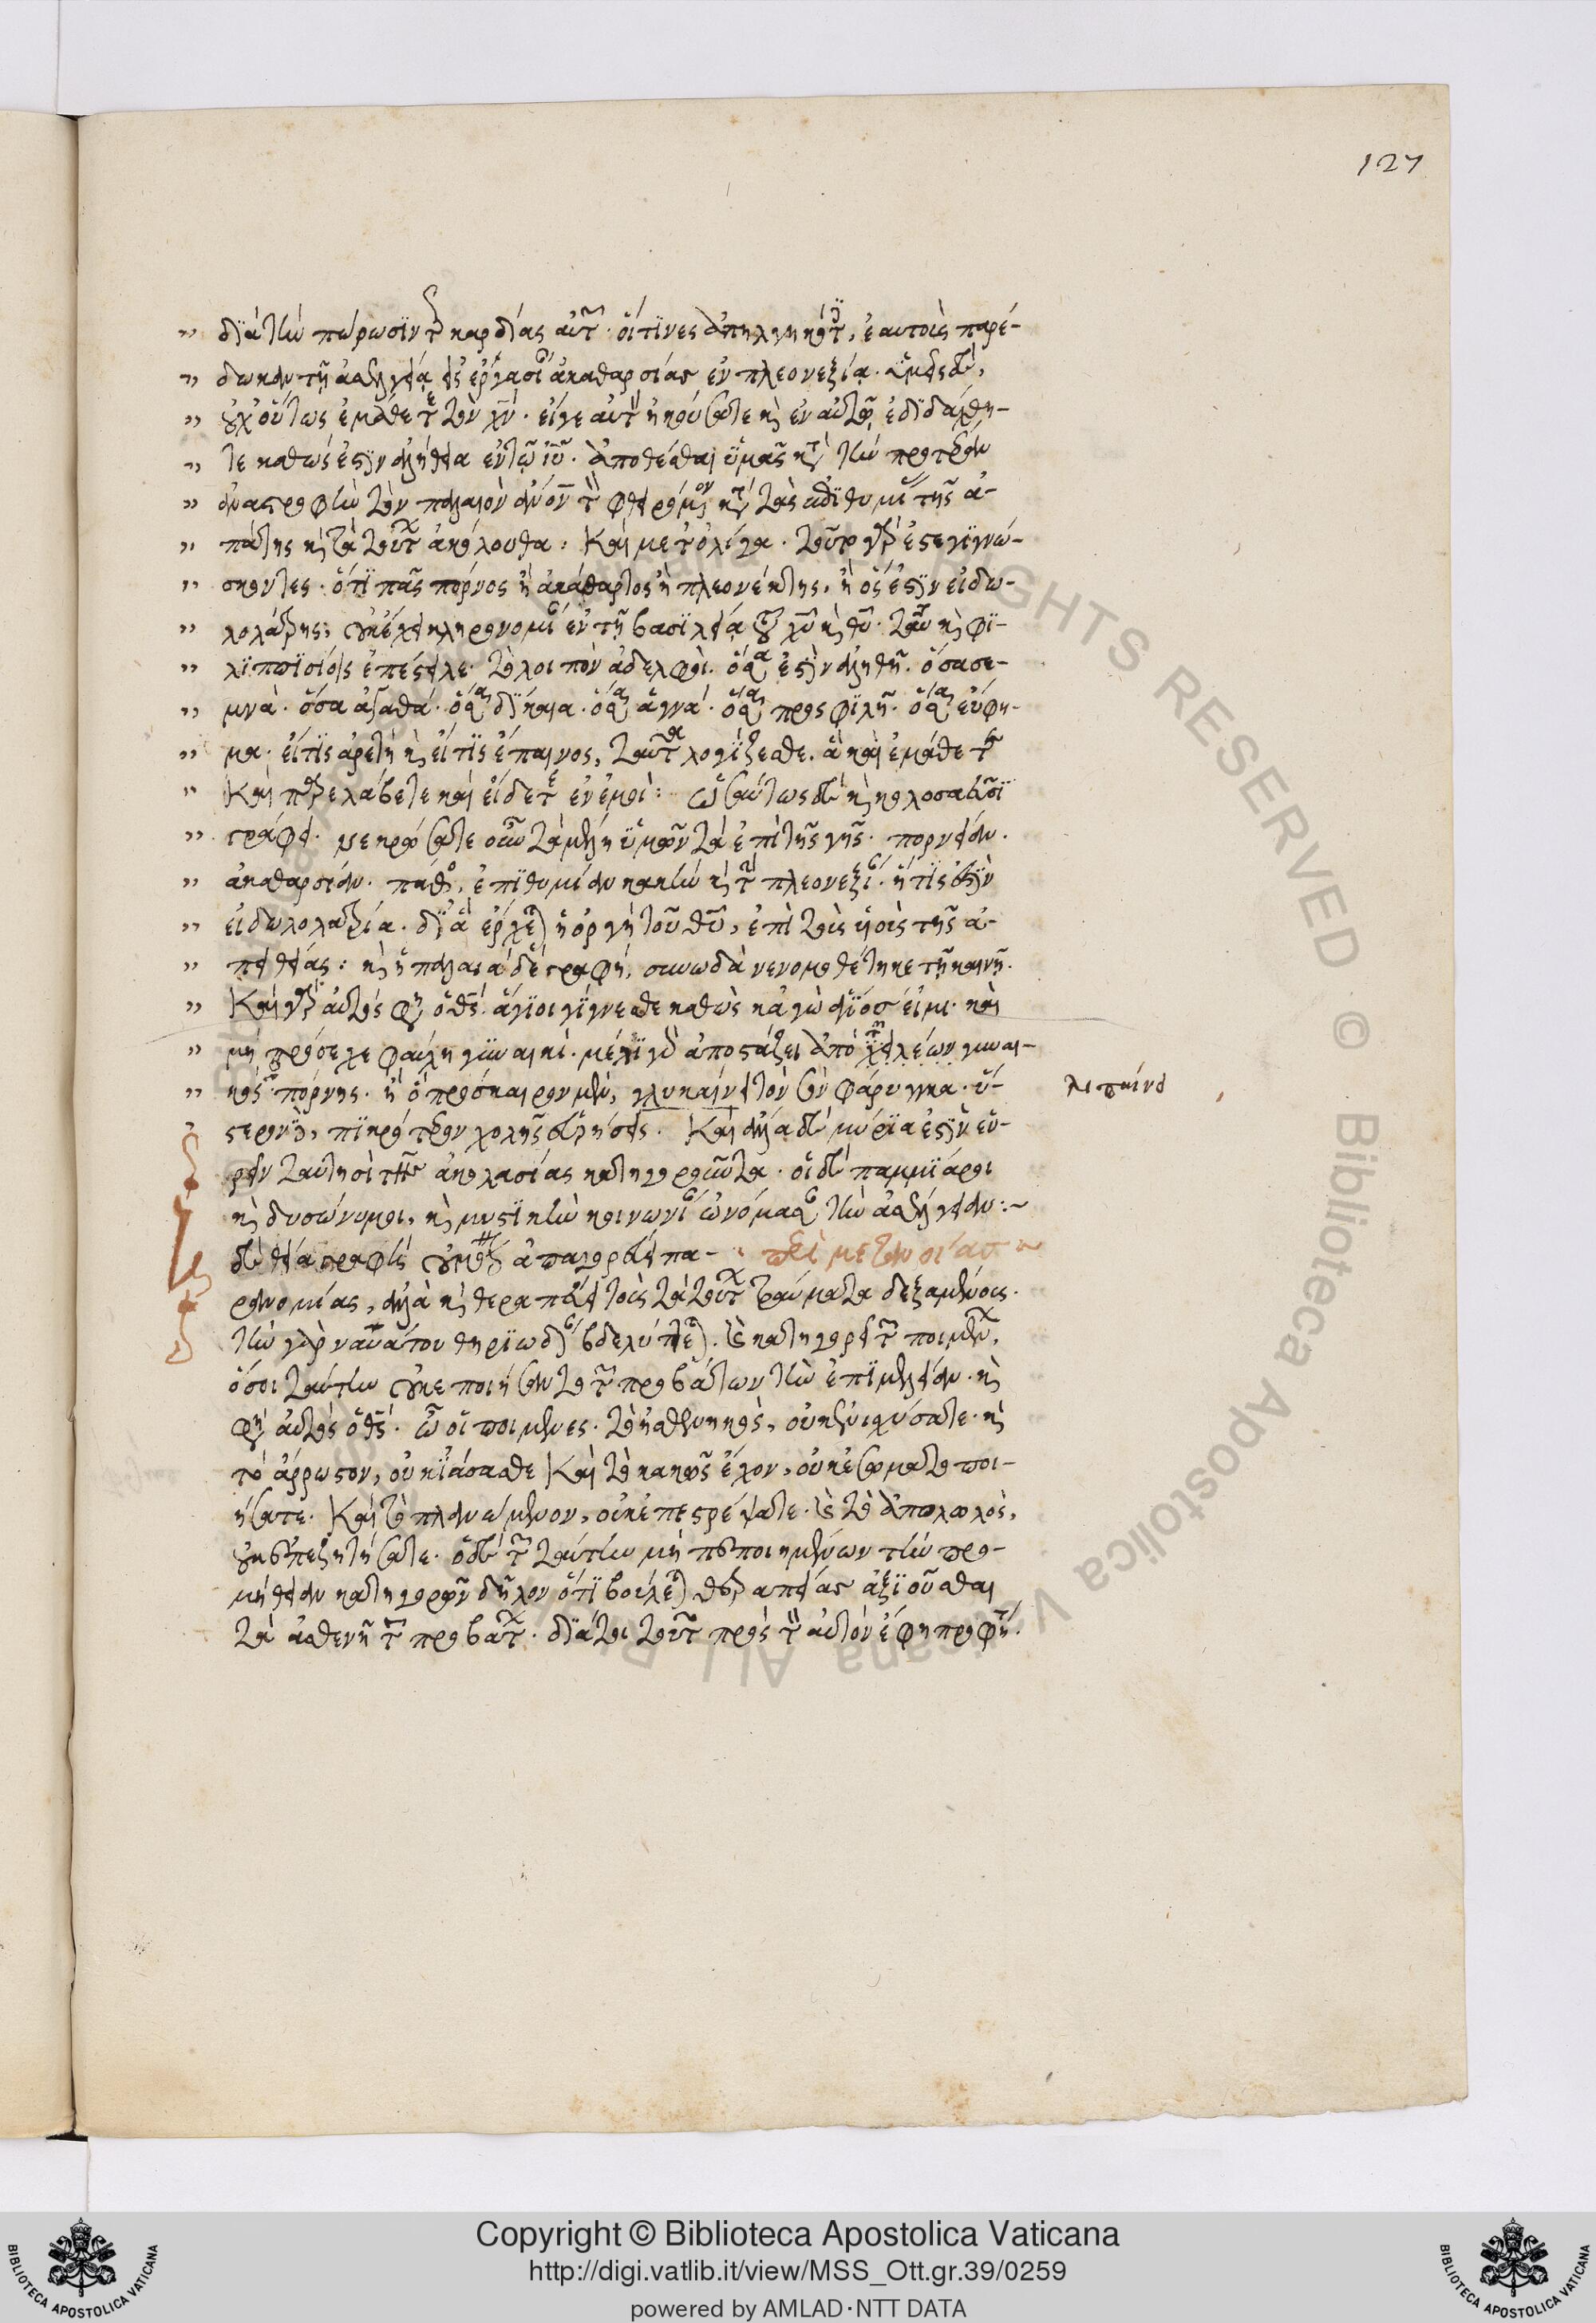 127
διὰ τὴν πώρωσιν τῆς καρδίας αὐτῶν· οἵτινες ἀπηλγηκότες, ἑαυτοὺς παρέ-
δωκαν τῇ ἀσελγείᾳ εἰς ἐργασίαν ἀκαθαρσίας ἐν πλεονεξίᾳ. ὑμεῖς δὲ,
οὐχ οὕτως ἐμάθετε τὸν χν· εἴγε αὐτοῦ ἠκούσατε καὶ ἐν αὐτῷ ἐδιδάχθη-
τε καθώς ἐστιν ἀλήθεια ἐν τῷ ιυ. ἀποθέσθαι ὑμᾶς κατὰ τὴν προτέραν
ἀναστροφὴν τὸν παλαιὸν ανον τὸν φθειρόμενον κατὰ τὰς ἐπιθυμίας τῆς ἀ-
πάτης καὶ τὰ τούτοις ἀκόλουθα: Καὶ μετ' ὀλίγα. τοῦτο γὰρ ἐστε γινώ-
σκοντες. ὅτι πᾶς πόρνος ἢ ἀκάθαρτος ἢ πλεονέκτης, ἢ ὅς ἐστιν εἰδω-
λολάτρης, οὐκ ἔχει κληρονομίαν ἐν τῇ βασιλείᾳ τοῦ χυ καὶ θυ. καὶ φι-
λιππισίοις ἐπέστειλε· τὸ λοιπὸν ἀδελφοὶ. ὅσα ἐστὶν ἀληθῆ. ὅσα σε-
μνὰ. ὅσα ἀγαθά. ὅσα δίκαια. ὅσα ἁγνά. ὅσα προσφιλῆ. ὅσα εὔφη-
μα. εἴ τις ἀρετὴ καὶ εἴ τις ἔπαινος, ταῦτα λογίζεσθε. ἃ καὶ ἐμάθετε
Καὶ παρελάβετε καὶ εἴδετε ἐν ἐμοὶ: ὡσαύτως δὲ καὶ κολοσσαεῦσι
γράφει. νεκρώσατε οὖν τὰ μέλη ὑμῶν τὰ ἐπὶ τῆς γῆς. πορνείαν.
ἀκαθαρσίαν. πάθος, ἐπιθυμίαν κακὴν καὶ τὴν πλεονεξίαν. ἥτις ἐστὶν
εἰδωλολατρία. δι' ἃ ἔρχεται ἡ ὀργὴ τοῦ θυ, ἐπὶ τοὺς υἱοὺς τῆς ἀ-
πειθείας: καὶ ἡ παλαιὰ δὲ γραφή, συνωδὰ νενομοθέτηκε τῇ καινῇ.
Καὶ γὰρ αὐτός φησιν ὁ θς. ἅγιοι γίνεσθε καθὼς κἀγὼ ἅγιός εἰμι. καὶ
μὴ πρόσεχε φαύλῃ γυναικί. μέλι γὰρ ἀποστάζει ἀπὸ χειλέων γυναι-
κὸς πόρνης. ἣ πρόσκαιρον μὲν, γλυκαίνει τὸν σὸν φάρυγγα. ὕ- λιπαίνει
στερον, πικρότερον χολῆς εὑρήσεις. Καὶ ἄλλα δὲ μύρια ἐστὶν εὑ-
ρεῖν ταυτησὶ τῆς ἀκολασίας κατηγοροῦντα. οἱ δὲ παμμίαροι
καὶ δυσώνυμοι, καὶ μυστικὴν κοινωνίαν ὠνόμασαν τὴν ἀσέλγειαν:~
περὶ μετανοίας ~
δὲ θεία γραφὴ οὐ μόνον ἀπαγορεύει πα-
ρανομίας, ἀλλὰ καὶ θεραπεύει τοὺς τὰ τοιαῦτα τραύματα δεξαμένους.
ὅσοι ταύτην οὐκ ἐποιήσαντο τῶν προβάτων τὴν ἐπιμέλειαν. καὶ
φησὶν αὐτὸς ὁ θς. ὦ οἱ ποιμένες. τὸ ἠσθενηκὸς, οὐκ ἐνισχύσατε. καὶ
τὸ ἄρρωστον, οὐκ ἰάσασθε Καὶ τὸ κακῶς ἔχον, οὐκ ἐσωματοποι-
ήσατε. Καὶ τὸ πλανώμενον, οὐκ ἐπεστρέψατε. καὶ τὸ ἀπολωλὸς,
οὐκ ἐπεζητήσατε. ὁ δὲ τῶν ταύτην μὴ πεποιημένων τὴν προ-
μήθειαν κατηγορῶν δῆλον ὅτι βούλεται θεραπείας ἀξιοῦσθαι
τὰ ἀσθενῆ τῶν προβάτων. διά τοι τοῦτο πρὸς τὸν αὐτὸν ἔφη προφήτην.
Copyright © Biblioteca Apostolica Vaticana
http://digi.vatlib.it/view/MSS_Ott.gr.39/0259
powered by AMLAD·NTT DATA